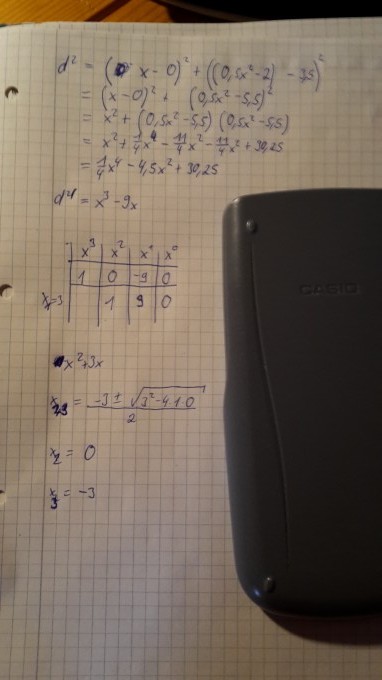 d² = (x - 0)² + ((0,5x² - 2) - 3,5)²
= (x - 0)² + (0,5x² - 5,5)²
= x² + (0,5x² - 5,5) (0,5x² - 5,5)
= x² + 1/4 x⁴ - 11/4 x² - 11/4 x² + 30,25
= 1/4 x⁴ - 4,5x² + 30,25
d²' = x³ - 9x
x³ | x² | x¹ | x⁰
1 | 0 | -9 | 0
x₁=3 | | 1 | 9 | 0
CASIO
x² + 3x
x₂,₃ = (-3 ± √(3² - 4·1·0)) / 2
x₂ = 0
x₃ = -3